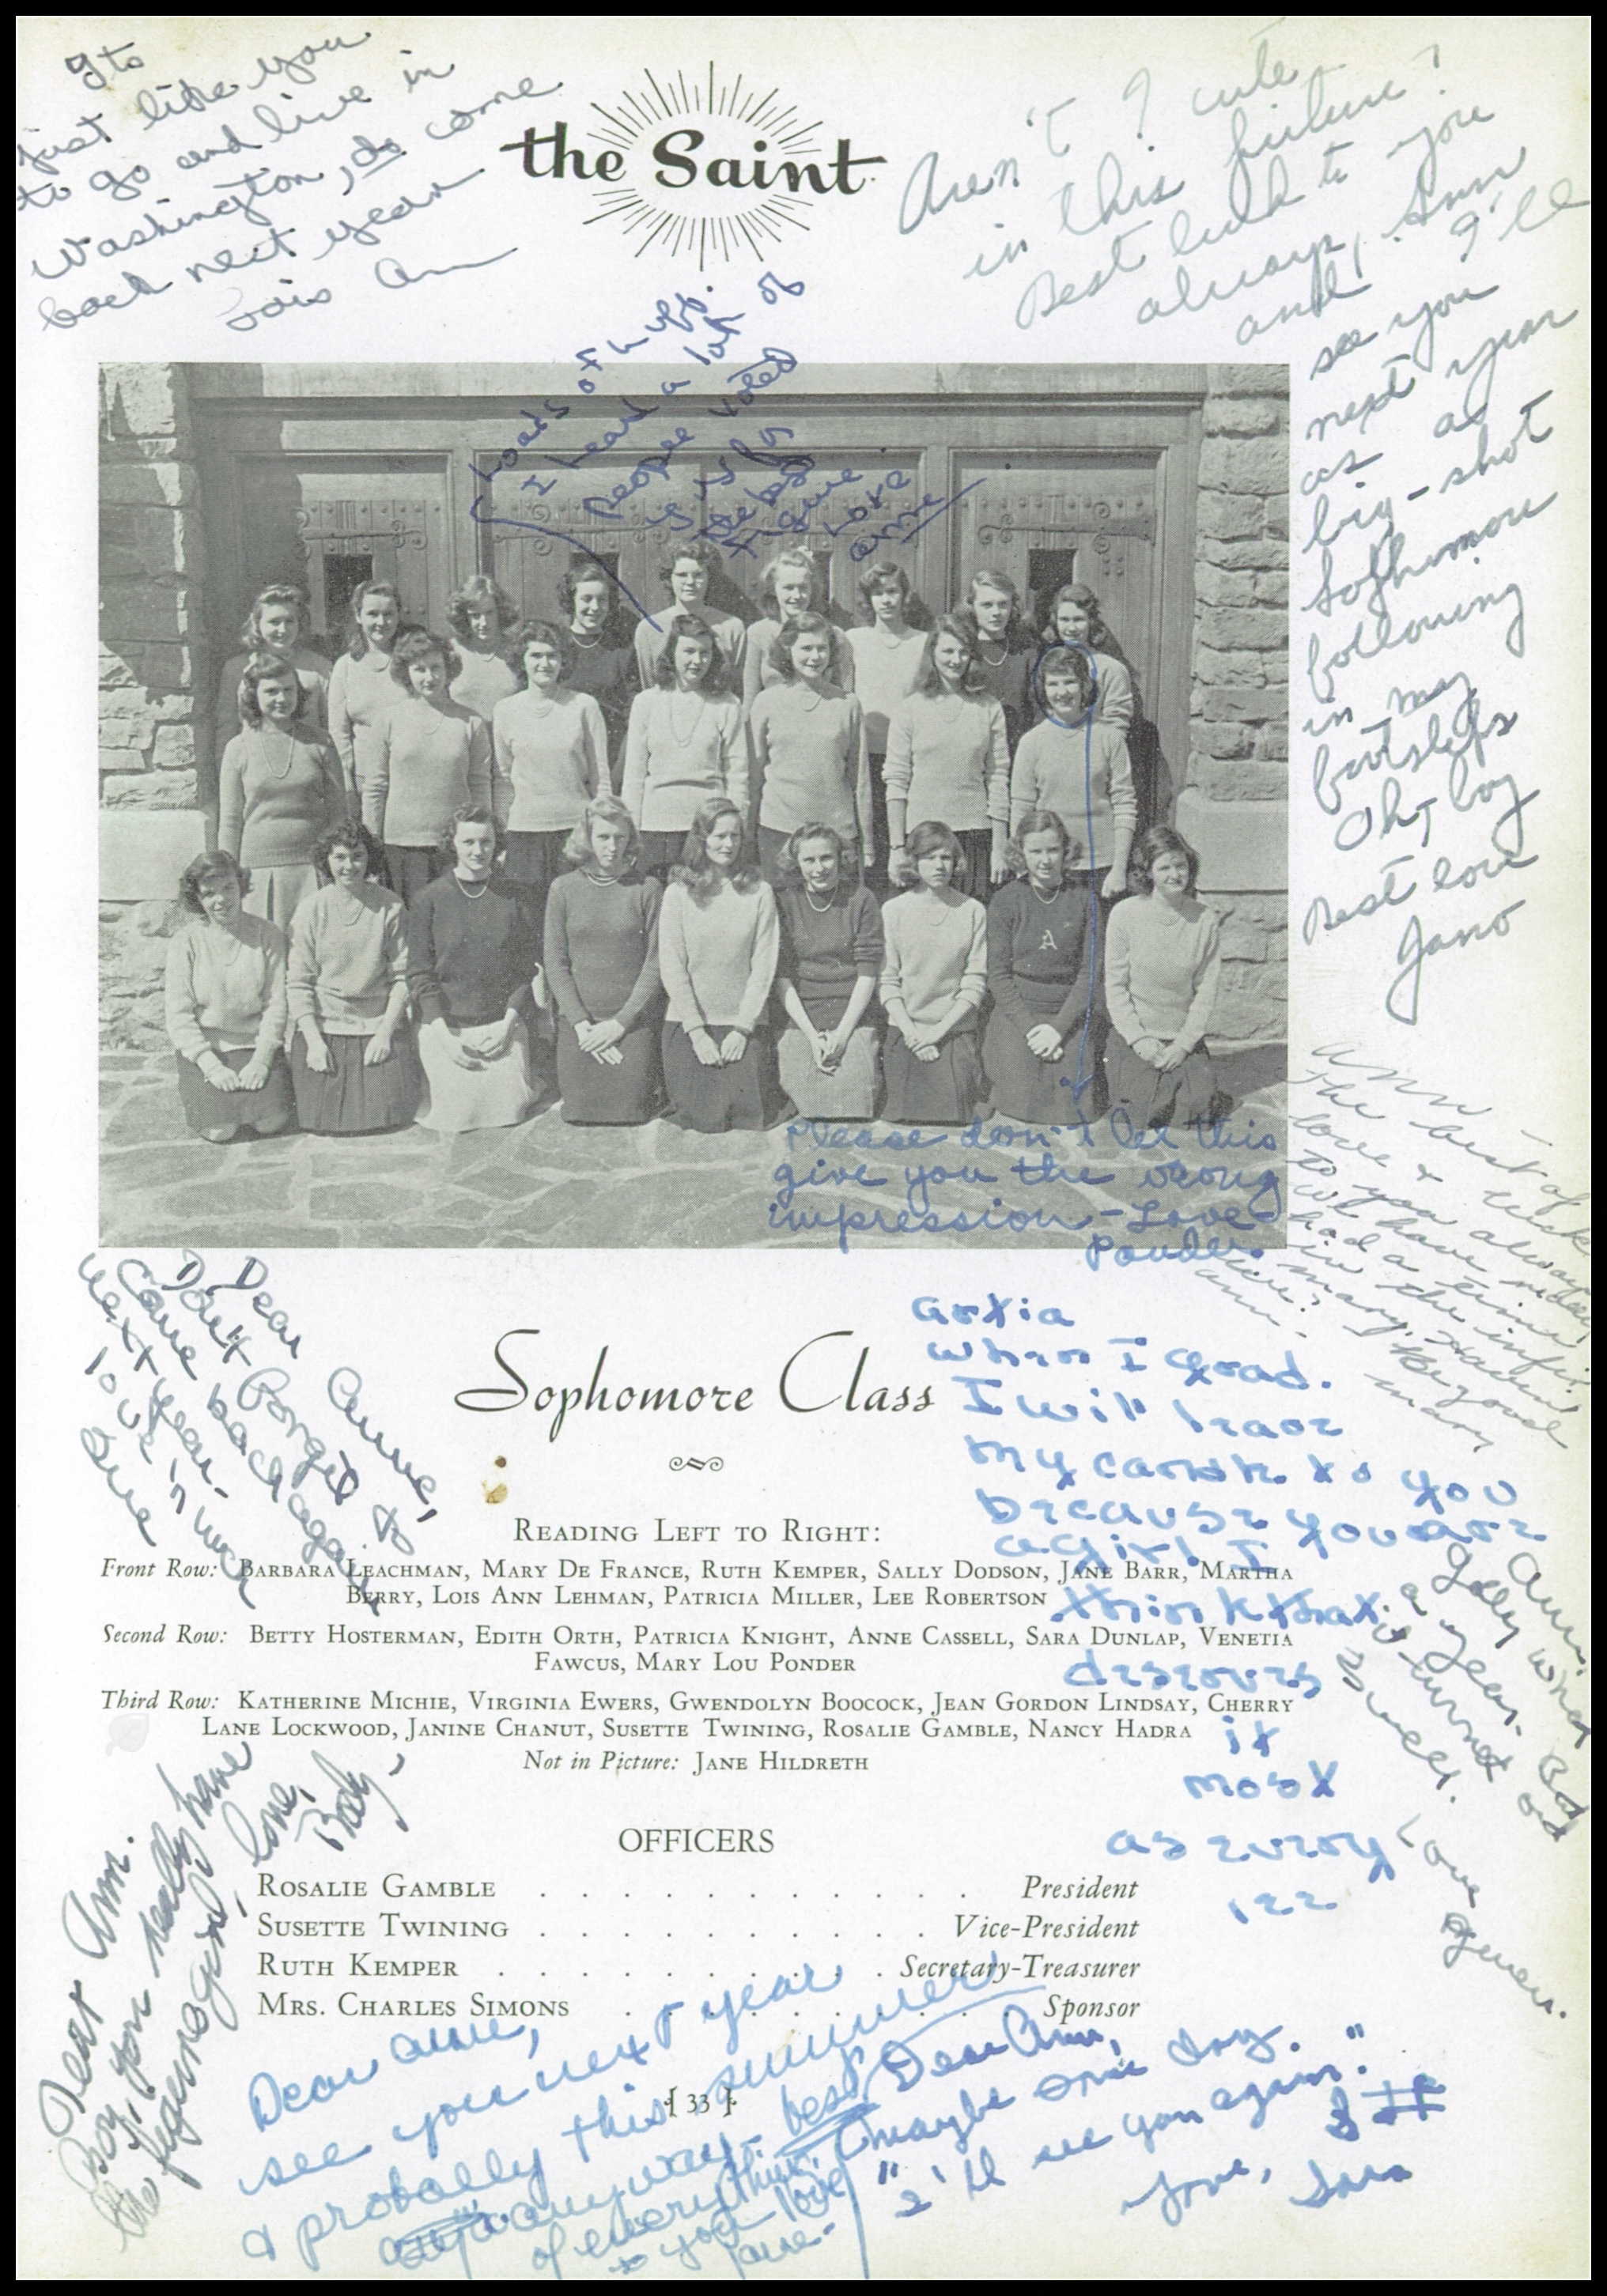 Its
just like you
to go and live in
Washington, do come
back next year
Lois Ann
the Saint
Aren't I cute
in this picture?
Best luck to you
always, Ann
and I'll
see you
next year
as a
big-shot
Sophomore
following
in my
footsteps
Oh, boy
Best love
Jano
Loads of
I heard a lot of
people voted
figure
Love
Anne
A
Please don't let this
give you the wrong
impression - Love -
Ponder.
Ann -
The best of
love & luck
to you always
We have
had a time
in the
Mary
Dear Anne,
Don't forget to
come back again
next year.
love 'n
Sophomore Class
when I
I will
my to you
because you are
a girl I
think that
it
most
as
Reading Left to Right:
Front Row: Barbara Leachman, Mary De France, Ruth Kemper, Sally Dodson, Jane Barr, Martha
Berry, Lois Ann Lehman, Patricia Miller, Lee Robertson
Second Row: Betty Hosterman, Edith Orth, Patricia Knight, Anne Cassell, Sara Dunlap, Venetia
Fawcus, Mary Lou Ponder
Third Row: Katherine Michie, Virginia Ewers, Gwendolyn Boocock, Jean Gordon Lindsay, Cherry
Lane Lockwood, Janine Chanut, Susette Twining, Rosalie Gamble, Nancy Hadra
Not in Picture: Jane Hildreth
Ann,
Golly what
a year.
turned out
swell.
Love
Gwen.
OFFICERS
Rosalie Gamble . . . . . . . . . . . President
Susette Twining . . . . . . . . . . Vice-President
Ruth Kemper . . . . . . . . . . Secretary-Treasurer
Mrs. Charles Simons . . . . . . . . . . Sponsor
Dear Ann.
Boy, you really have
the figure girl,
love,
Dear Anne,
see you next year
& probably this summer
anyway - best
of everything
to you love
{ 33 }
Dear Ann,
Maybe some day.
"I'll see you again."
Love, Sara